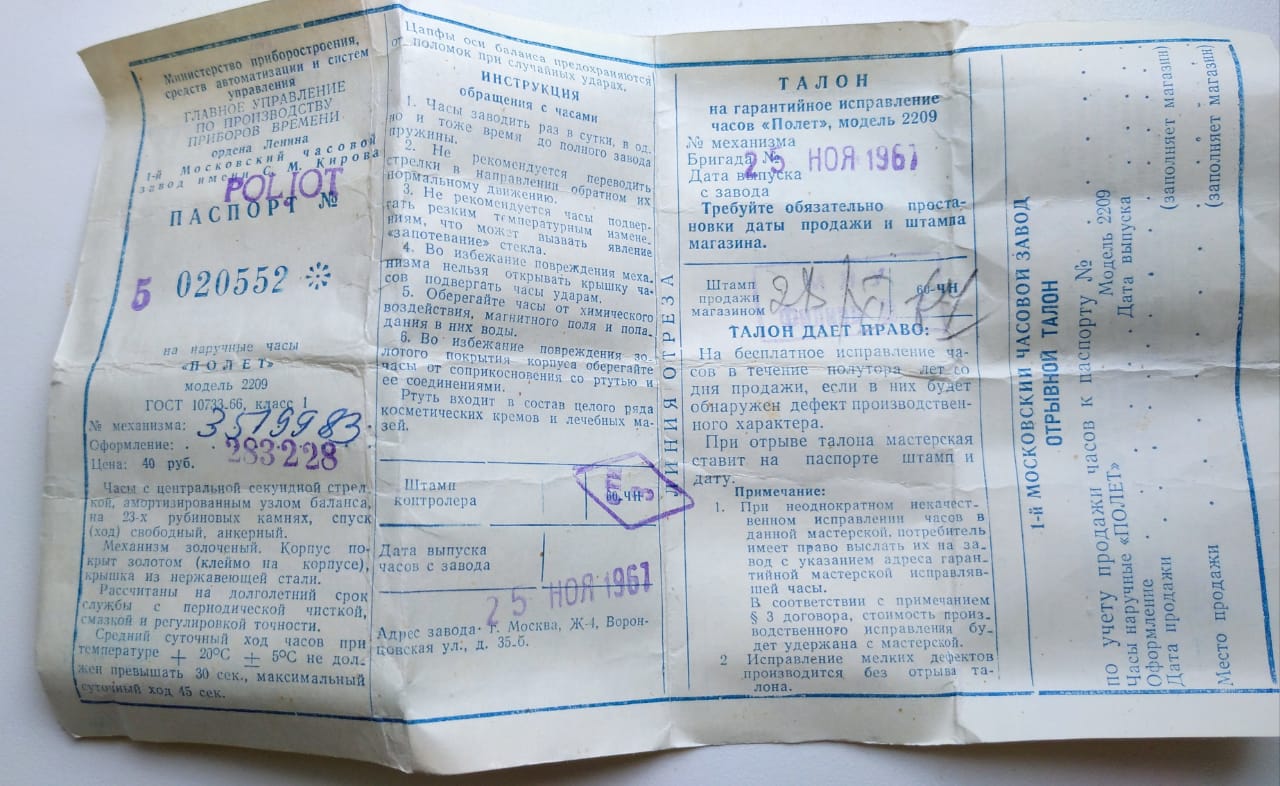 Министерство приборостроения,
средств автоматизации и систем
управления
ГЛАВНОЕ УПРАВЛЕНИЕ
ПО ПРОИЗВОДСТВУ
ПРИБОРОВ ВРЕМЕНИ
ордена Ленина
1-й Московский часовой
завод имени С. М. Кирова
POLJOT
ПАСПОРТ №
5 020552
на наручные часы
«ПОЛЕТ»
модель 2209
ГОСТ 10733-66, класс 1
№ механизма: 3519983
Оформление: 283228
Цена: 40 руб.
Часы с центральной секундной стрел-
кой, амортизированным узлом баланса,
на 23-х рубиновых камнях, спуск
(ход) свободный, анкерный.
Механизм золоченый. Корпус по-
крыт золотом (клеймо на корпусе),
крышка из нержавеющей стали.
Рассчитаны на долголетний срок
службы с периодической чисткой,
смазкой и регулировкой точности.
Средний суточный ход часов при
температуре + 20°С ± 5°С не дол-
жен превышать 30 сек., максимальный
суточный ход 45 сек.
Цапфы оси баланса предохраняются
от поломок при случайных ударах.
ИНСТРУКЦИЯ
обращения с часами
1. Часы заводить раз в сутки, в од.
но и тоже время до полного завода
пружины.
2. Не рекомендуется переводить
стрелки в направлении обратном их
нормальному движению.
3. Не рекомендуется часы подвер-
гать резким температурным измене.
ниям, что может вызвать явление
«запотевание» стекла.
4. Во избежание повреждения меха.
низма нельзя открывать крышку ча-
сов подвергать часы ударам.
5. Оберегайте часы от химического
воздействия, магнитного поля и попа-
дания в них воды.
6. Во избежание повреждения зо-
лотого покрытия корпуса оберегайте
часы от соприкосновения со ртутью и
ее соединениями.
Ртуть входит в состав целого ряда
косметических кремов и лечебных ма-
зей.
Штамп
контролера
60-ЧН
Дата выпуска
часов с завода
25 НОЯ 1967
Адрес завода- г. Москва, Ж-4, Ворон-
цовская ул., д. 35-б.
ЛИНИЯ ОТРЕЗА
ТАЛОН
на гарантийное исправление
часов «Полет», модель 2209
№ механизма
Бригада №
25 НОЯ 1967
Дата выпуска
с завода
Требуйте обязательно проста-
новки даты продажи и штампа
магазина.
Штамп
продажи
магазином
60-ЧН
ТАЛОН ДАЕТ ПРАВО:
На бесплатное исправление ча-
сов в течение полутора лет со
дня продажи, если в них будет
обнаружен дефект производствен-
ного характера.
При отрыве талона мастерская
ставит на паспорте штамп и
дату.
Примечание:
1. При неоднократном некачест-
венном исправлении часов в
данной мастерской, потребитель
имеет право выслать их на за-
вод с указанием адреса гаран-
тийной мастерской исправляв-
шей часы.
В соответствии с примечанием
§ 3 договора, стоимость произ-
водственного исправления бу-
дет удержана с мастерской.
2 Исправление мелких дефектов
производится без отрыва та-
лона.
1-й МОСКОВСКИЙ ЧАСОВОЙ ЗАВОД
ОТРЫВНОЙ ТАЛОН
по учету продажи часов к паспорту №
Часы наручные «ПОЛЕТ» Модель 2209
Оформление Дата выпуска
Дата продажи (заполняет магазин)
Место продажи (заполняет магазин)